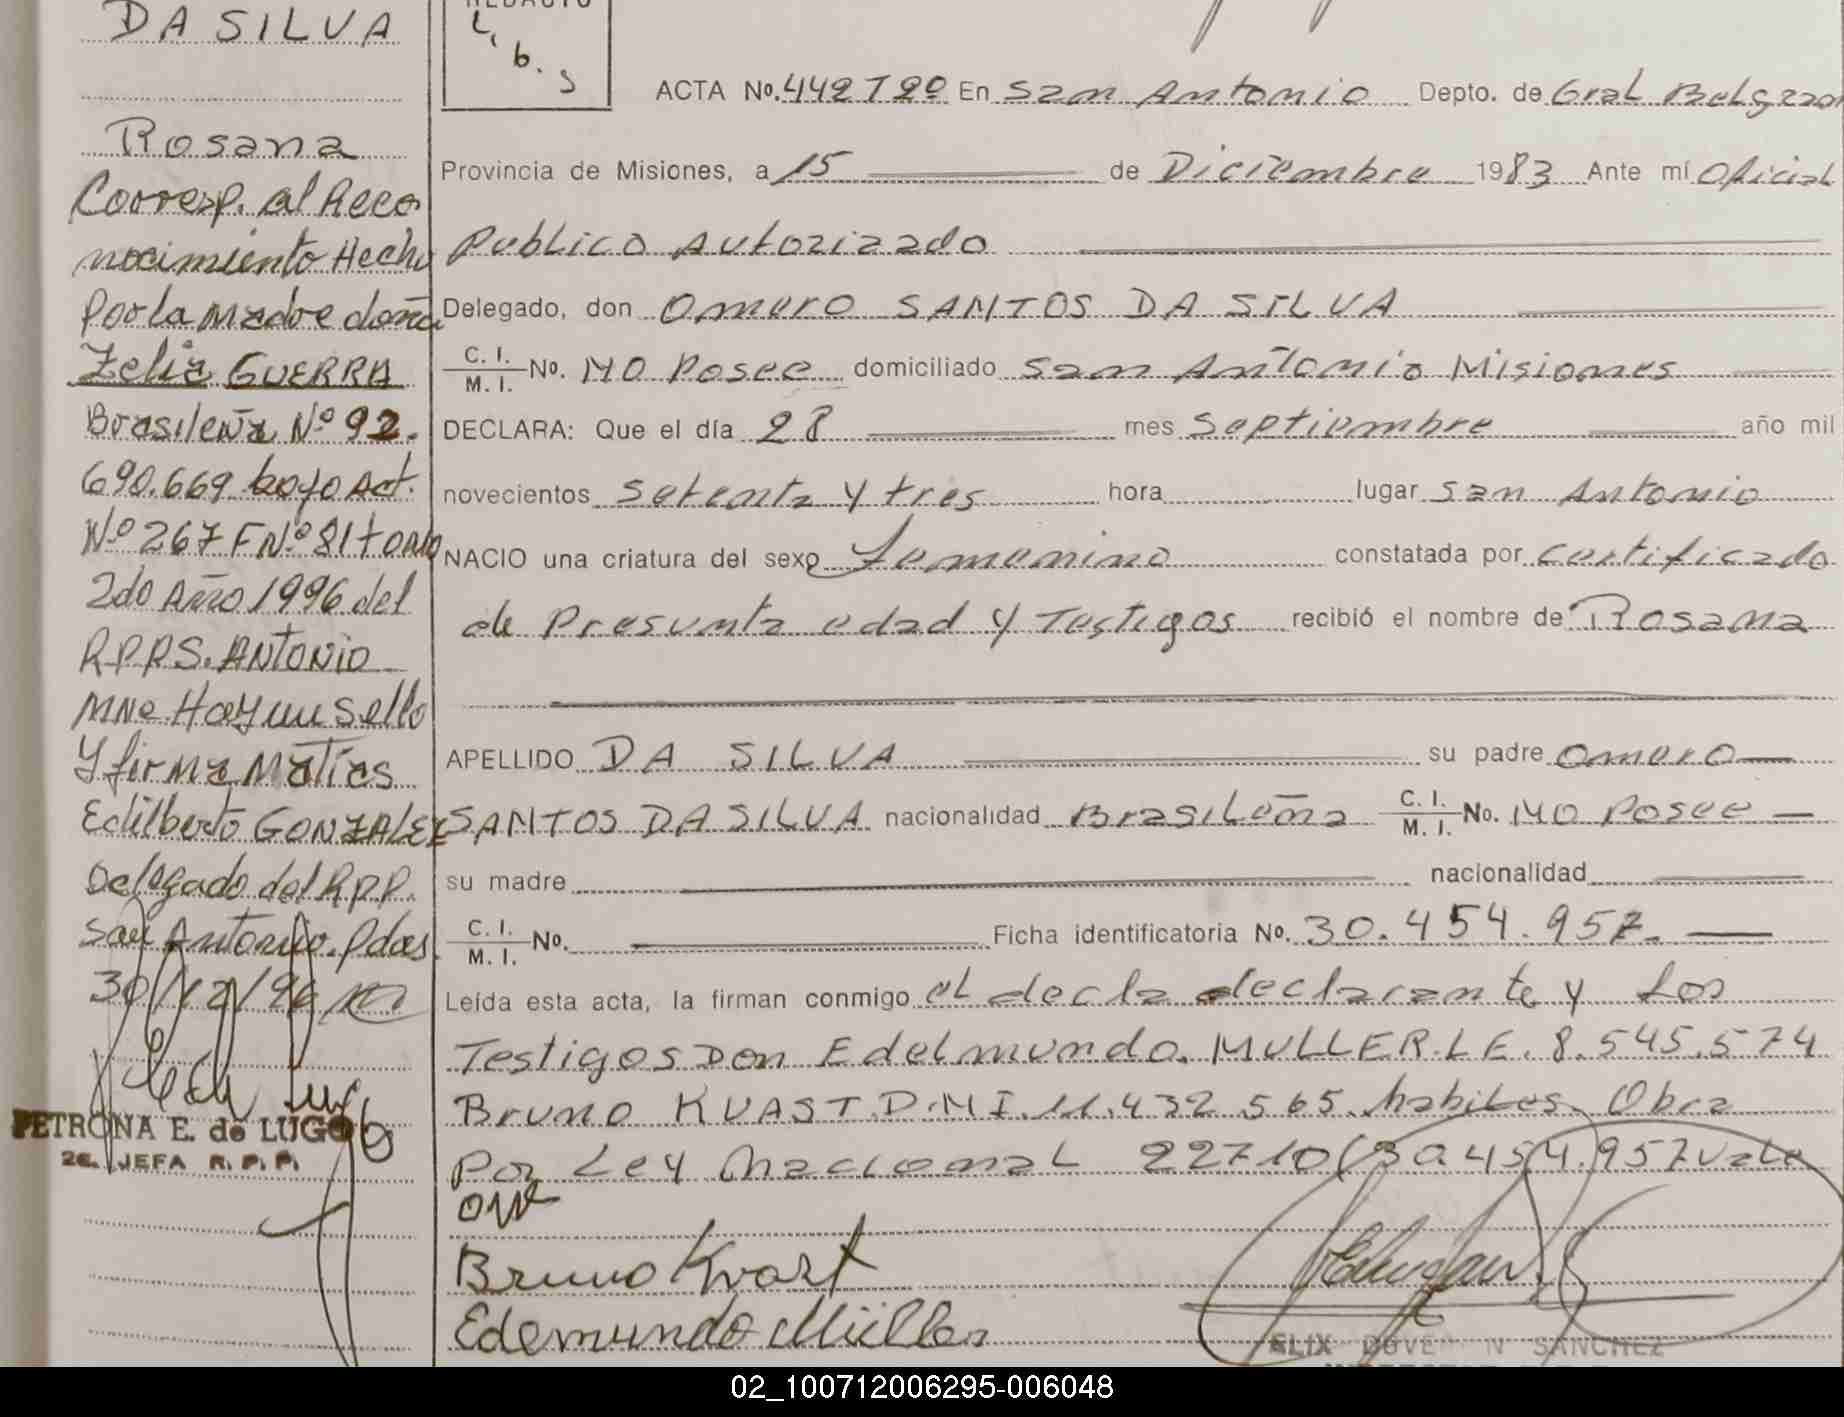 DA SILVA
Rosana
Corresp. al Reco
nocimiento Hecho
Por la madre doña
Zelia GUERRA
Brasileña Nº 92.
690.669 bajo Act.
Nº 267 F Nº 81 tomo
2do Año 1996 del
R.P.P.S. ANTONIO
MNe. Hay un Sello
Y firma Matias
Edilberto GONZALEZ
Delegado del R.P.P.
San Antonio. Pdas.
30/12/96
PETRONA E. de LUGO
2E. JEFA R. P. P.
L. b. s
ACTA No. 442 T 2º En San Antonio Depto. de Gral Belgrano
Provincia de Misiones, a 15 de Diciembre 1983 Ante mí Oficial
Publico Autorizado
Delegado, don Omero SANTOS DA SILVA
C. I. / M. I. No. NO Posee domiciliado San Antonio Misiones
DECLARA: Que el día 28 mes Septiembre año mil
novecientos Setenta y tres hora lugar San Antonio
NACIO una criatura del sexo Femenino constatada por certificado
de Presunta edad y Testigos recibió el nombre de Rosana
APELLIDO DA SILVA su padre Omero
SANTOS DA SILVA nacionalidad Brasileña C. I. / M. I. No. NO Posee
su madre nacionalidad
C. I. / M. I. No. Ficha identificatoria No. 30.454.957.
Leída esta acta, la firman conmigo el decla declarante y Los
Testigos Don Edelmundo. MULLER. L E. 8.545.574
Bruno KUAST. D.N I. 11.432.565. habiles. Obra
Por Ley Nacional 22710 (30.454.957 Vale
Bruno Kvast
Edemundo Müller
02_100712006295-006048